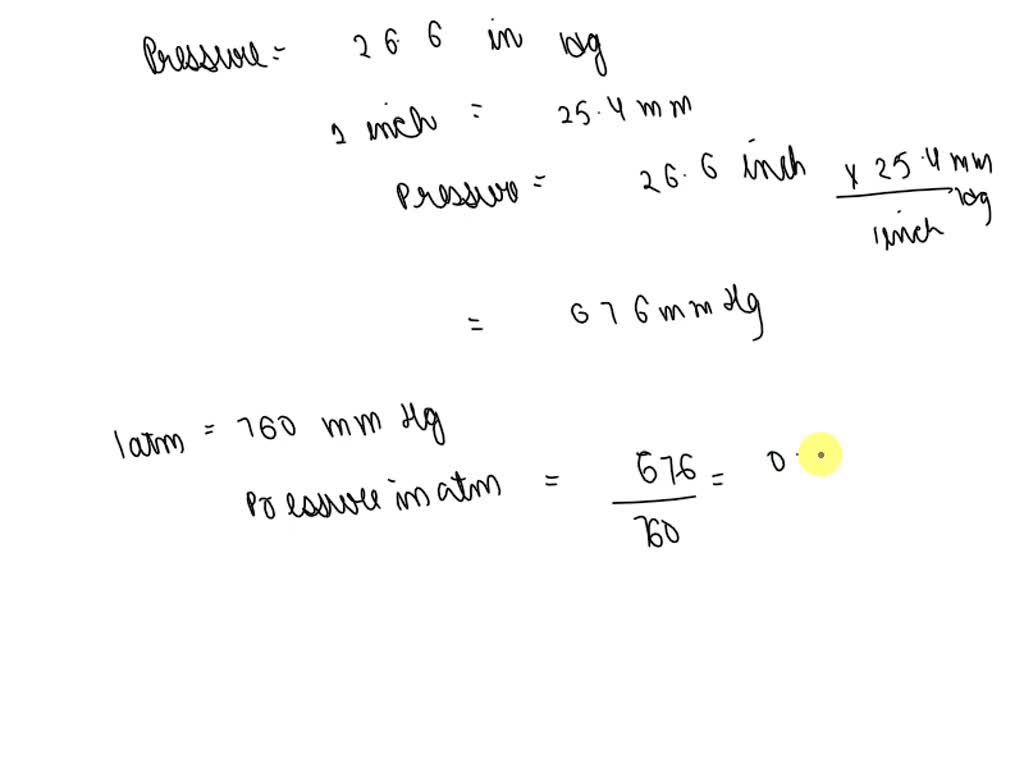 Pressure = 26.6 in Hg
1 inch = 25.4 mm
Pressure = 26.6 inch x 25.4 mm Hg
1 inch
= 676 mm Hg
1 atm = 760 mm Hg
Pressure in atm = 676 = 0.
760